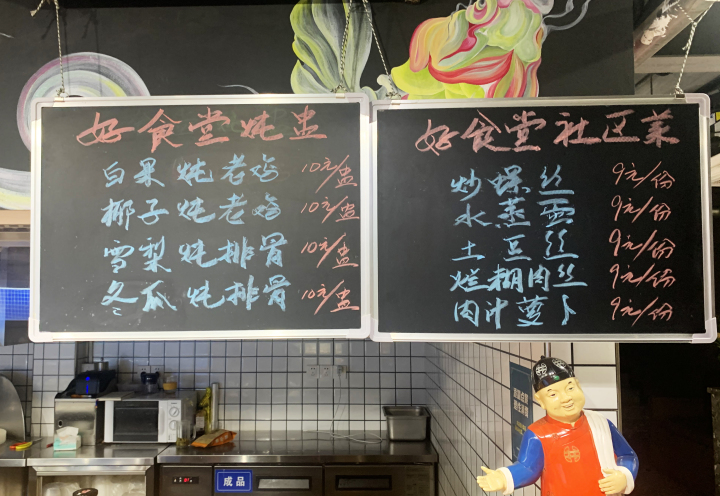 好食堂炖盅
白果炖老鸡 10元/盅
椰子炖老鸡 10元/盅
雪梨炖排骨 10元/盅
冬瓜炖排骨 10元/盅
好食堂社区菜
炒螺丝 9元/份
水蒸蛋 9元/份
土豆丝 9元/份
烂糊肉丝 9元/份
肉汁萝卜 9元/份
成品